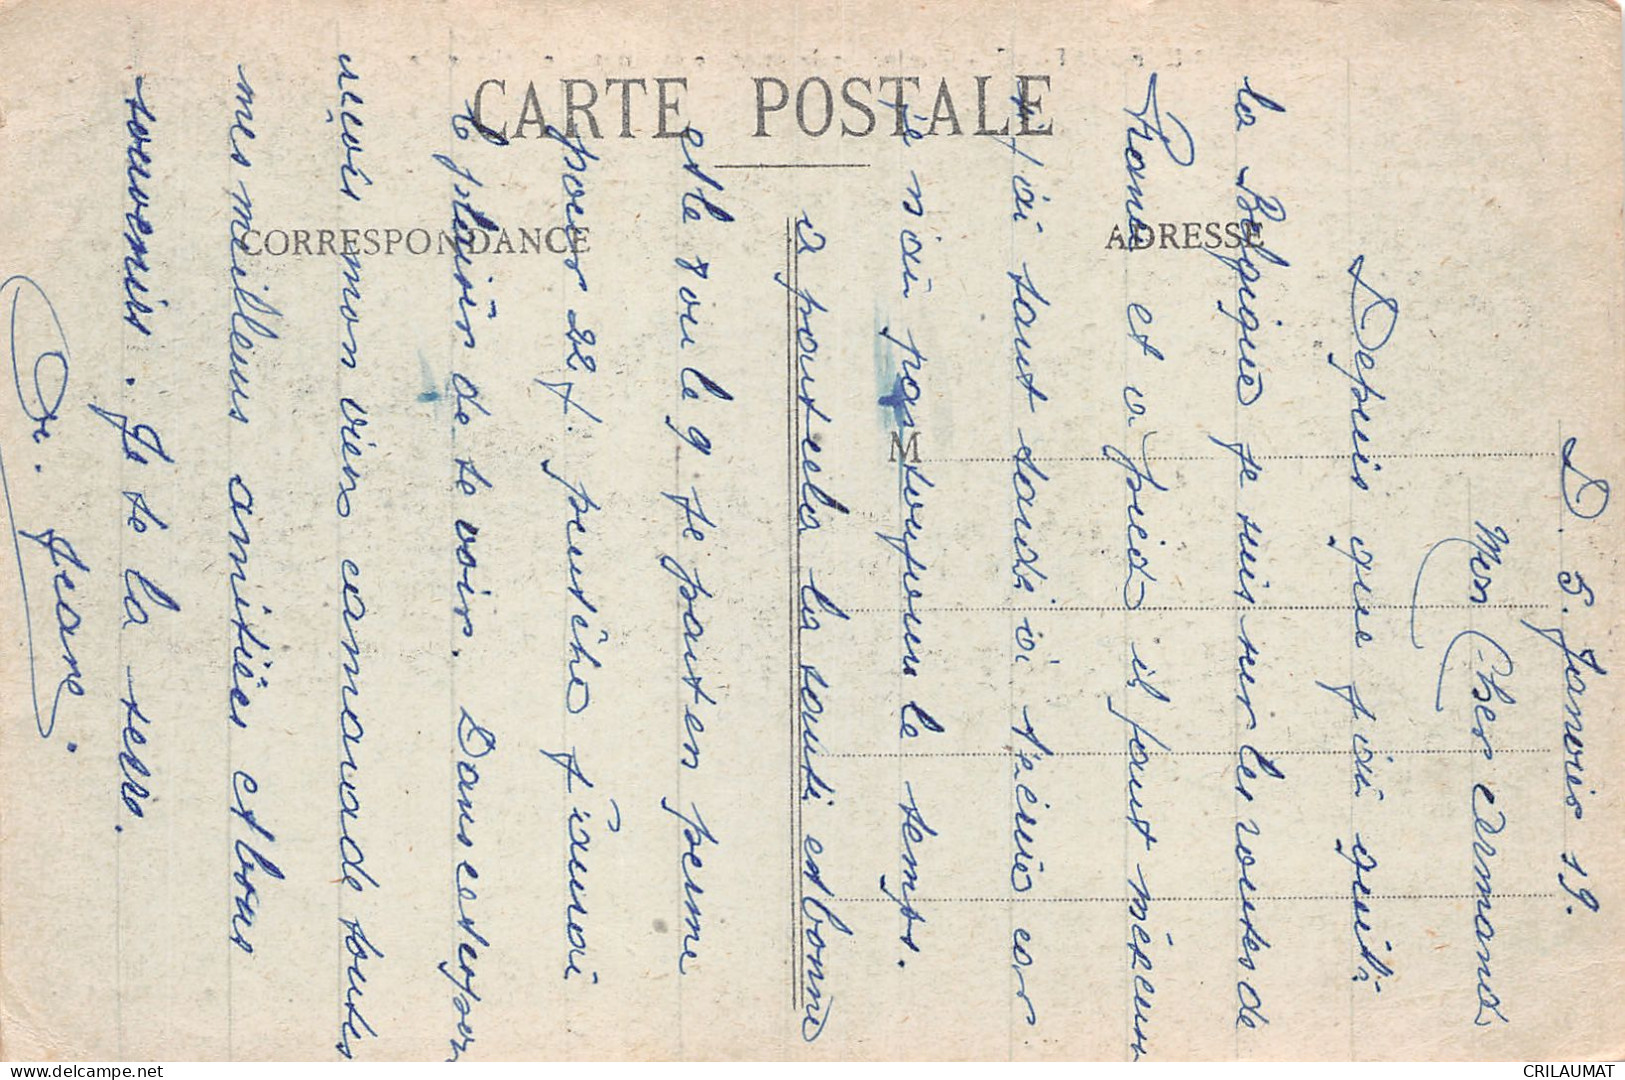 CARTE POSTALE
CORRESPONDANCE
ADRESSE
M
D. 5. Janvier 19.
Mon Cher Armand.
Depuis que j'ai quitt
la Belgique je suis sur les routes de
France et a pied il faut
si j'ai tant tardé a t'ecrir car
je n'ai pas toujour le temps.
a part cela la santé et bonne
et le 8 ou le 9 je part en perme
pour 22 j. peut être j'aurai
le plaisir de te voir. Dans cet espoir
reçois mon vieux camarade toutes
mes meilleurs amitiés et bons
souvenirs. Je te la serre.